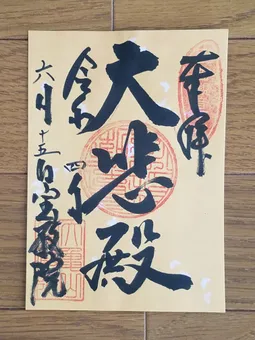 奉拝
大悲殿
令和四年
六月十五日宝厳院